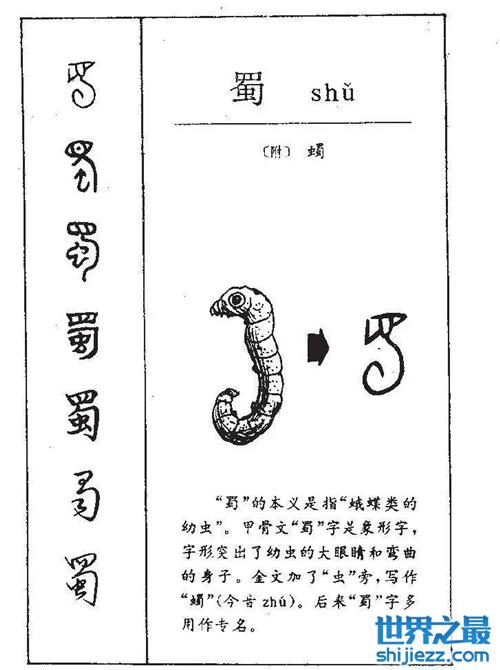 蜀 shǔ
〔附〕 蠋
“蜀”的本义是指“蛾蝶类的
幼虫”。甲骨文“蜀”字是象形字，
字形突出了幼虫的大眼睛和弯曲
的身子。金文加了“虫”旁，写作
“蠋”(今音zhú)。后来“蜀”字多
用作专名。
蜀
蜀
蜀
世界之最
shijiezz.com